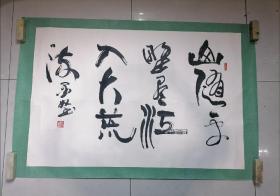 山随平
野尽江
入大荒
流